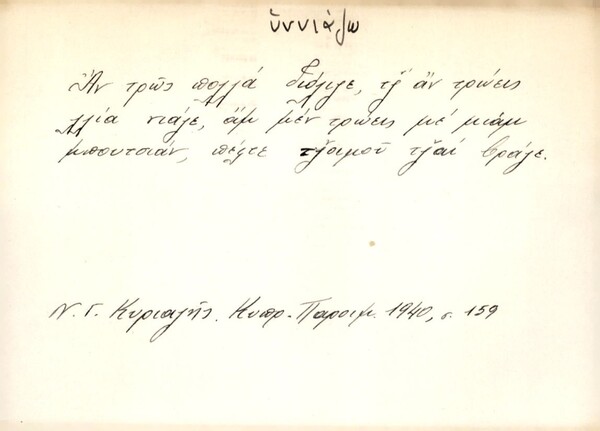 ὑννιάζω
Ἂν τρῶς πολλά διόλιζε, τζ̌' ἂν τρώεις
λλία νιάζε, ἄμ μέν τρώεις μέ μιάμ
μπουτσιάν, πέφτε τζ̌οιμοῦ τζ̌αί βράζε.
Ν. Γ. Κυριαζῆς, Κυπρ. Παροιμ. 1940, σ. 159